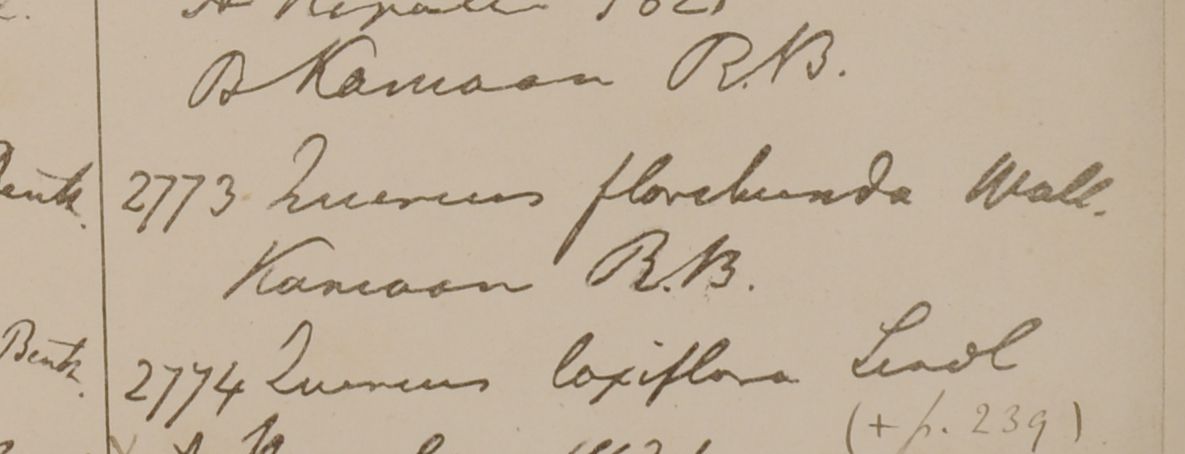 A Nepalia 1821
B Kamaon R.B.
Benth. 2773 Quercus floribunda Wall.
Kamaon R.B.
Benth. 2774 Quercus laxiflora Lindl
(+ p. 239)